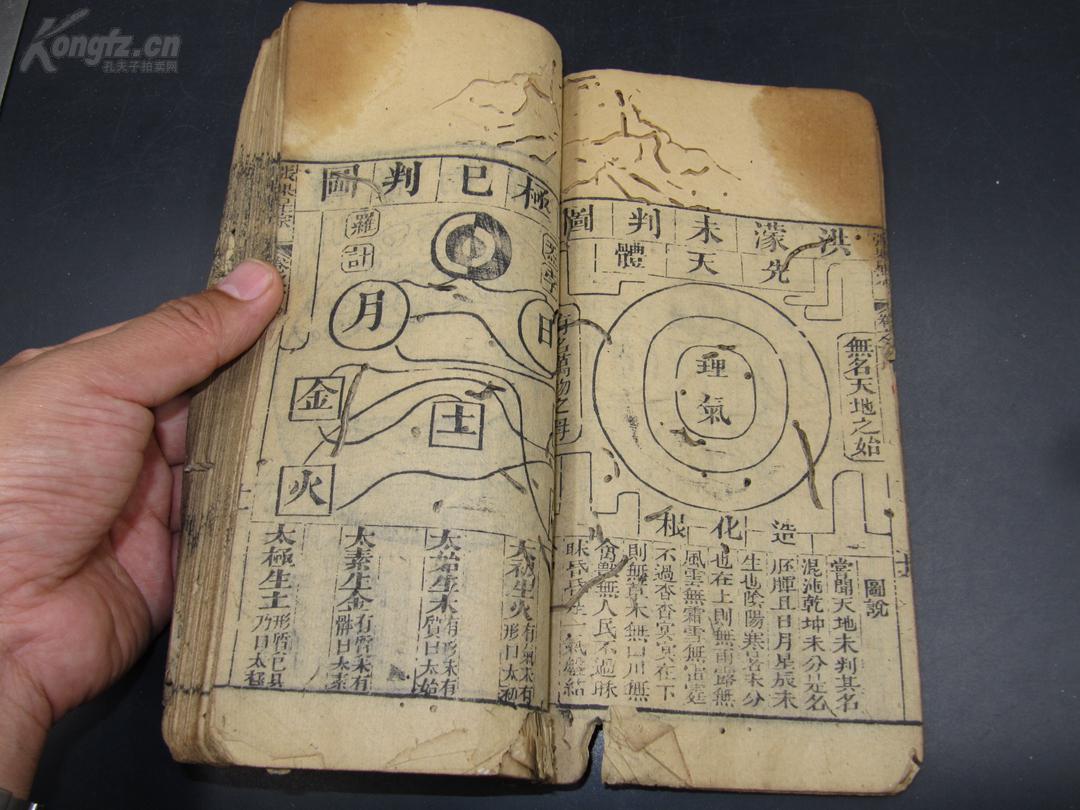 Kongfz.cn
孔夫子拍卖网
洪濛未判圖
先天體
無名天地之始
理氣
有名萬物之母
造化根
圖說
嘗聞天地未判其名
混沌乾坤未分是名
胚腪且日月星辰未
生也陰陽寒暑未分
也在上則無雨露無
風雲無霜雪無雷霆
不過杳杳冥冥在下
則無草木無山川無
禽獸無人民不過昧
昧昏昏 一氣盤結
極已判圖
羅
計
日
月
土
金
火
太初生火有氣未有形曰太初
太始生木有形未有質曰太始
太素生金有質未有體曰太素
太極生土形質已具乃曰太極